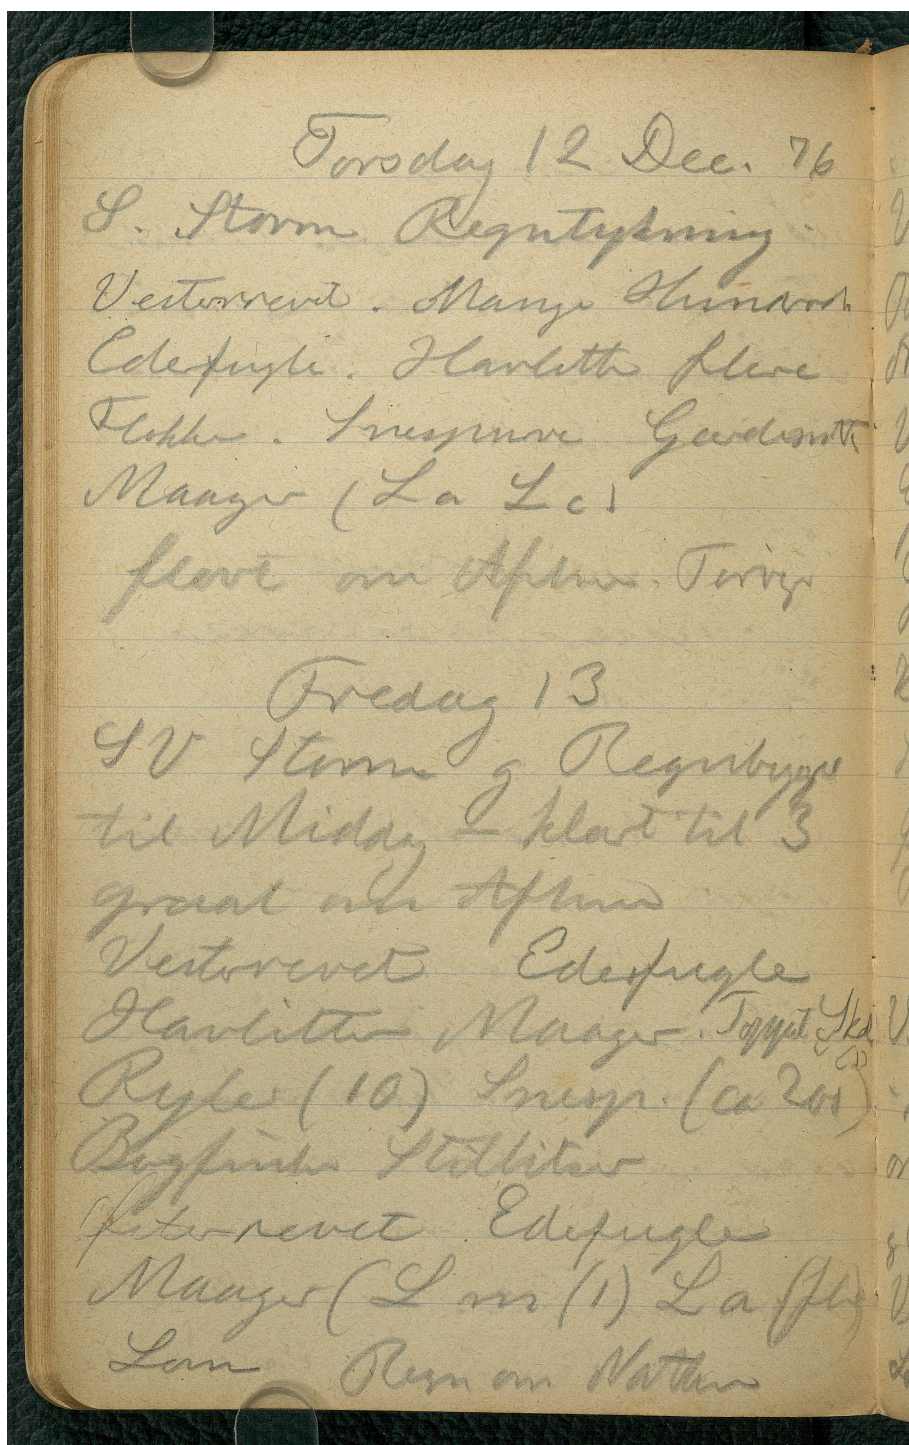 Torsdag 12 Dec. 76
S. Storm Regntykning.
Vesterrevet. Mange Hundrede
Ederfugle. Havlitter flere
Flokke. Snespurve Gærdesmutte
Maager (La Lc)
flovt om Aftnen.
Fredag 13
SV Storm og Regnbyger
til Middag – klart til 3
graat om Aftnen
Vesterrevet Ederfugle
Havlitter Maager. Toppet Skd. (1)
Ryler (10) Snesp. (ca 200)
Bogfinke Stillitser
Østerrevet Ederfugle
Maager (L m (1) La (fl))
Lom Regn om Natten